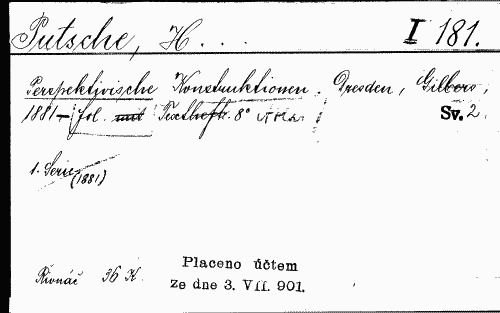 Putsche, H. . . .
I 181.
Perspektivische Konstruktionen. Dresden, Gilbers,
1881— fol. mit Textheft. 8°
Sv. 2.
1. Serie (1881)
Řivnáč 36 K.
Placeno účtem
ze dne 3. VII. 901.